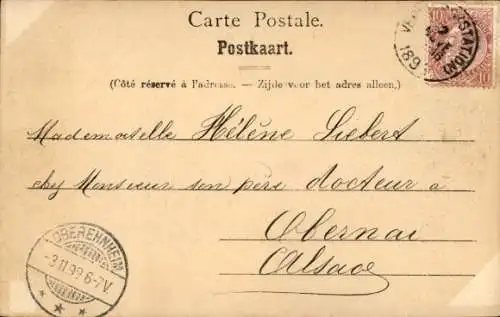 Carte Postale.
Postkaart.
(Côté réservé à l'adresse. — Zijde voor het adres alleen.)
Mademoiselle Hélène Siebert
chez Monsieur son père docteur à
Obernai
Alsace
OBEREHNHEIM
-3.11.99.6-7V.
(STATION)
189
10
10